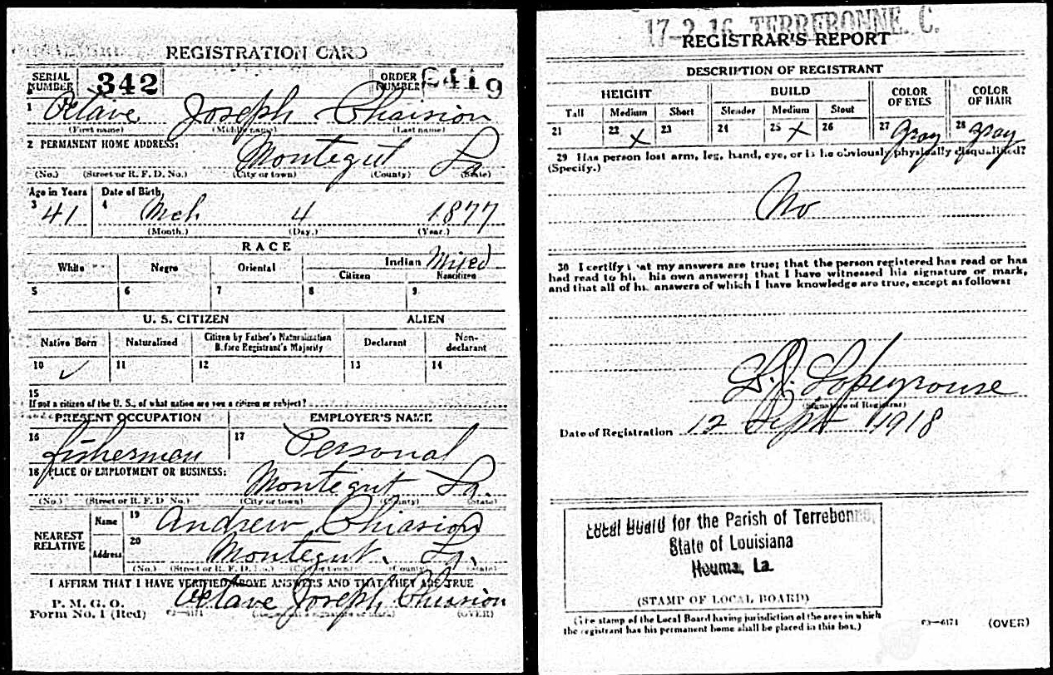 REGISTRATION CARD
SERIAL NUMBER 342 ORDER NUMBER 9
1 Octave Joseph Chaision
(First name) (Middle name) (Last name)
2 PERMANENT HOME ADDRESS:
Montegut La.
(No.) (Street or R. F. D. No.) (City or town) (County) (State)
Age in Years Date of Birth
3 41 4 Mch 4 1877
(Month.) (Day.) (Year.)
RACE
White Negro Oriental Indian Mixed
Citizen Noncitizen
5 6 7 8 9
U. S. CITIZEN ALIEN
Native Born Naturalized Citizen by Father's Naturalization Before Registrant's Majority Declarant Non-declarant
10 ✓ 11 12 13 14
15
If not a citizen of the U. S., of what nation are you a citizen or subject?
PRESENT OCCUPATION EMPLOYER'S NAME
16 fisherman 17 Personal
18 PLACE OF EMPLOYMENT OR BUSINESS:
Montegut La.
(No.) (Street or R. F. D. No.) (City or town) (County) (State)
NEAREST RELATIVE Name 19 Andrew Chiasion
Address 20 Montegut. La.
(No.) (Street or R. F. D. No.) (City or town) (County) (State)
I AFFIRM THAT I HAVE VERIFIED ABOVE ANSWERS AND THAT THEY ARE TRUE
P. M. G. O.
Form No. 1 (Red) Octave Joseph Chiasion
(OVER)
17-2-16 TERREBONNE, C.
REGISTRAR'S REPORT
DESCRIPTION OF REGISTRANT
HEIGHT BUILD COLOR OF EYES COLOR OF HAIR
Tall Medium Short Slender Medium Stout
21 22 X 23 24 25 X 26 27 Gray 28 Gray
29 Has person lost arm, leg, hand, eye, or is he obviously physically disqualified?
(Specify.)
No
30 I certify that my answers are true; that the person registered has read or has
had read to him his own answers; that I have witnessed his signature or mark,
and that all of his answers of which I have knowledge are true, except as follows:
L. J. Lapeyrouse
(Signature of Registrar)
Date of Registration 12 Sept 1918
Local Board for the Parish of Terrebonne,
State of Louisiana
Houma, La.
(STAMP OF LOCAL BOARD)
(The stamp of the Local Board having jurisdiction of the area in which
the registrant has his permanent home shall be placed in this box.)
03-6171 (OVER)